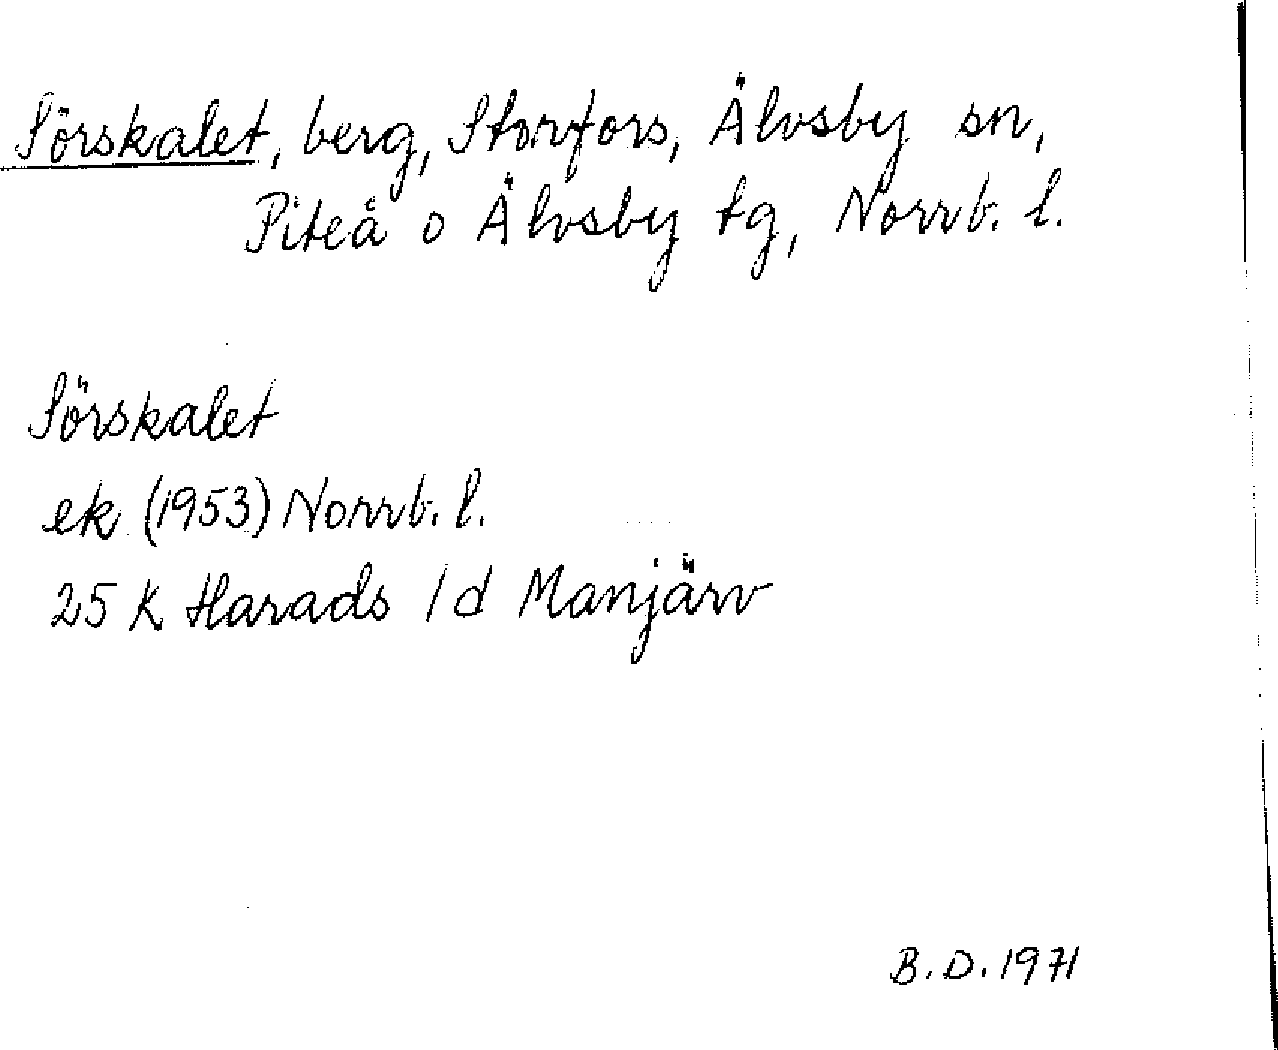 Sörskalet, berg, Storfors, Älvsby sn,
Piteå o Älvsby tg, Norrb. l.
Sörskalet
ek (1953) Norrb. l.
25 K Harads 1 d Manjärv
B.D. 1971